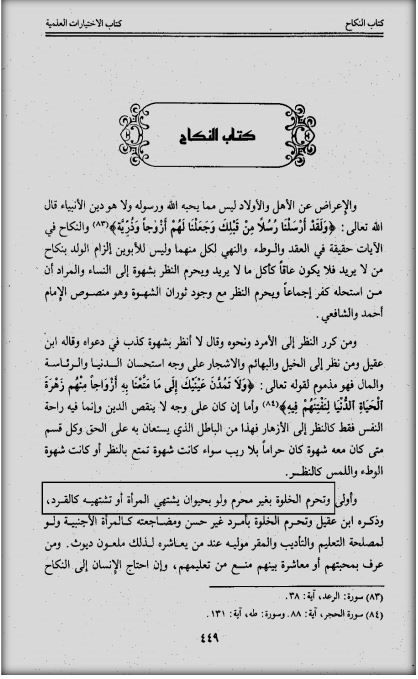 كتاب النكاح
كتاب الاختيارات العلمية
كتاب النكاح
والإعراض عن الأهل والأولاد ليس مما يحبه الله ورسوله ولا هو دين الأنبياء قال
الله تعالى: ﴿وَلَقَدْ أَرْسَلْنَا رُسُلًا مِنْ قَبْلِكَ وَجَعَلْنَا لَهُمْ أَزْوَاجاً وَذُرِّيَّة﴾(٨٣) والنكاح في
الآيات حقيقة في العقد والوطء والنهي لكل منهما وليس للأبوين إلزام الولد بنكاح
من لا يريد فلا يكون عاقاً كأكل ما لا يريد ويحرم النظر بشهوة إلى النساء والمراد أن
من استحله كفر إجماعاً ويحرم النظر مع وجود ثوران الشهوة وهو منصوص الإمام
أحمد والشافعي.
ومن كرر النظر إلى الأمرد ونحوه وقال لا أنظر بشهوة كذب في دعواه وقاله ابن
عقيل ومن نظر إلى الخيل والبهائم والاشجار على وجه استحسان الدنيا والرئاسة
والمال فهو مذموم لقوله تعالى: ﴿وَلَا تَمُدَّنَّ عَيْنَيْكَ إِلَى مَا مَتَّعْنَا بِهِ أَزْوَاجاً مِنْهُم زَهْرَةَ
الْحَيَاةِ الدُّنْيَا لِنَفْتِنَهُمْ فِيهِ﴾(٨٤) وأما إن كان على وجه لا ينقص الدين وإنما فيه راحة
النفس فقط كالنظر إلى الأزهار فهذا من الباطل الذي يستعان به على الحق وكل قسم
متى كان معه شهوة كان حراماً بلا ريب سواء كانت شهوة تمتع بالنظر أو كانت شهوة
الوطء واللمس كالنظر.
وأولى وتحرم الخلوة بغير محرم ولو بحيوان يشتهي المرأة أو تشتهيه كالقرد،
وذكره ابن عقيل وتحرم الخلوة بأمرد غير حسن ومضاجعته كالمرأة الأجنبية ولو
لمصلحة التعليم والتأديب والمقر موليه عند من يعاشره لذلك ملعون ديوث. ومن
عرف بمحبتهم أو معاشرة بينهم منع من تعليمهم، وإن احتاج الإنسان إلى النكاح
(٨٣) سورة: الرعد، آية: ٣٨.
(٨٤) سورة الحجر، آية: ٨٨. وسورة: طه، آية: ١٣١.
٤٤٩